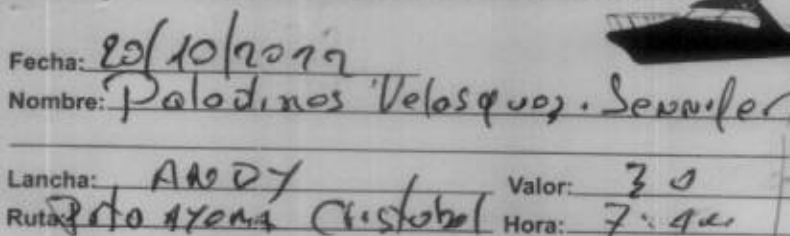 Fecha: 20/10/2022
Nombre: Paladines Velasquez. Jennifer
Lancha: ANDY Valor: 30
Ruta: Pto Ayora Cristobal Hora: 7: